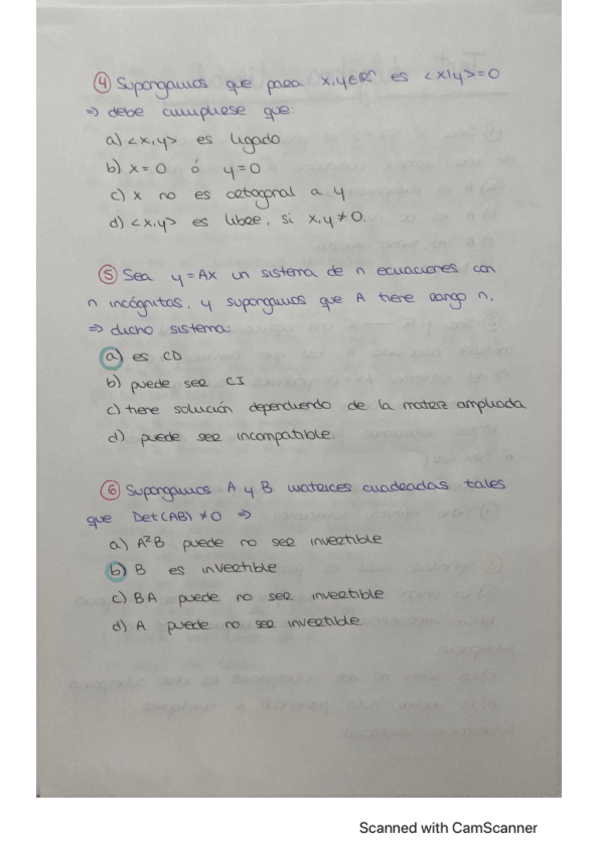 ④ Supongamos que para x,y∈ℝⁿ es <x|y>=0
⇒ debe cumplirse que:
a) <x,y> es ligado
b) x=0 ó y=0
c) x no es ortogonal a y
d) <x,y> es libre, si x,y≠0.
⑤ Sea y=Ax un sistema de n ecuaciones con
n incógnitas, y supongamos que A tiene rango n,
⇒ dicho sistema:
a) es CD
b) puede ser CI
c) tiene solución dependiendo de la matriz ampliada
d) puede ser incompatible.
⑥ Supongamos A y B matrices cuadradas tales
que Det(AB) ≠0 ⇒
a) A²B puede no ser invertible
b) B es invertible
c) BA puede no ser invertible
d) A puede no ser invertible.
Scanned with CamScanner